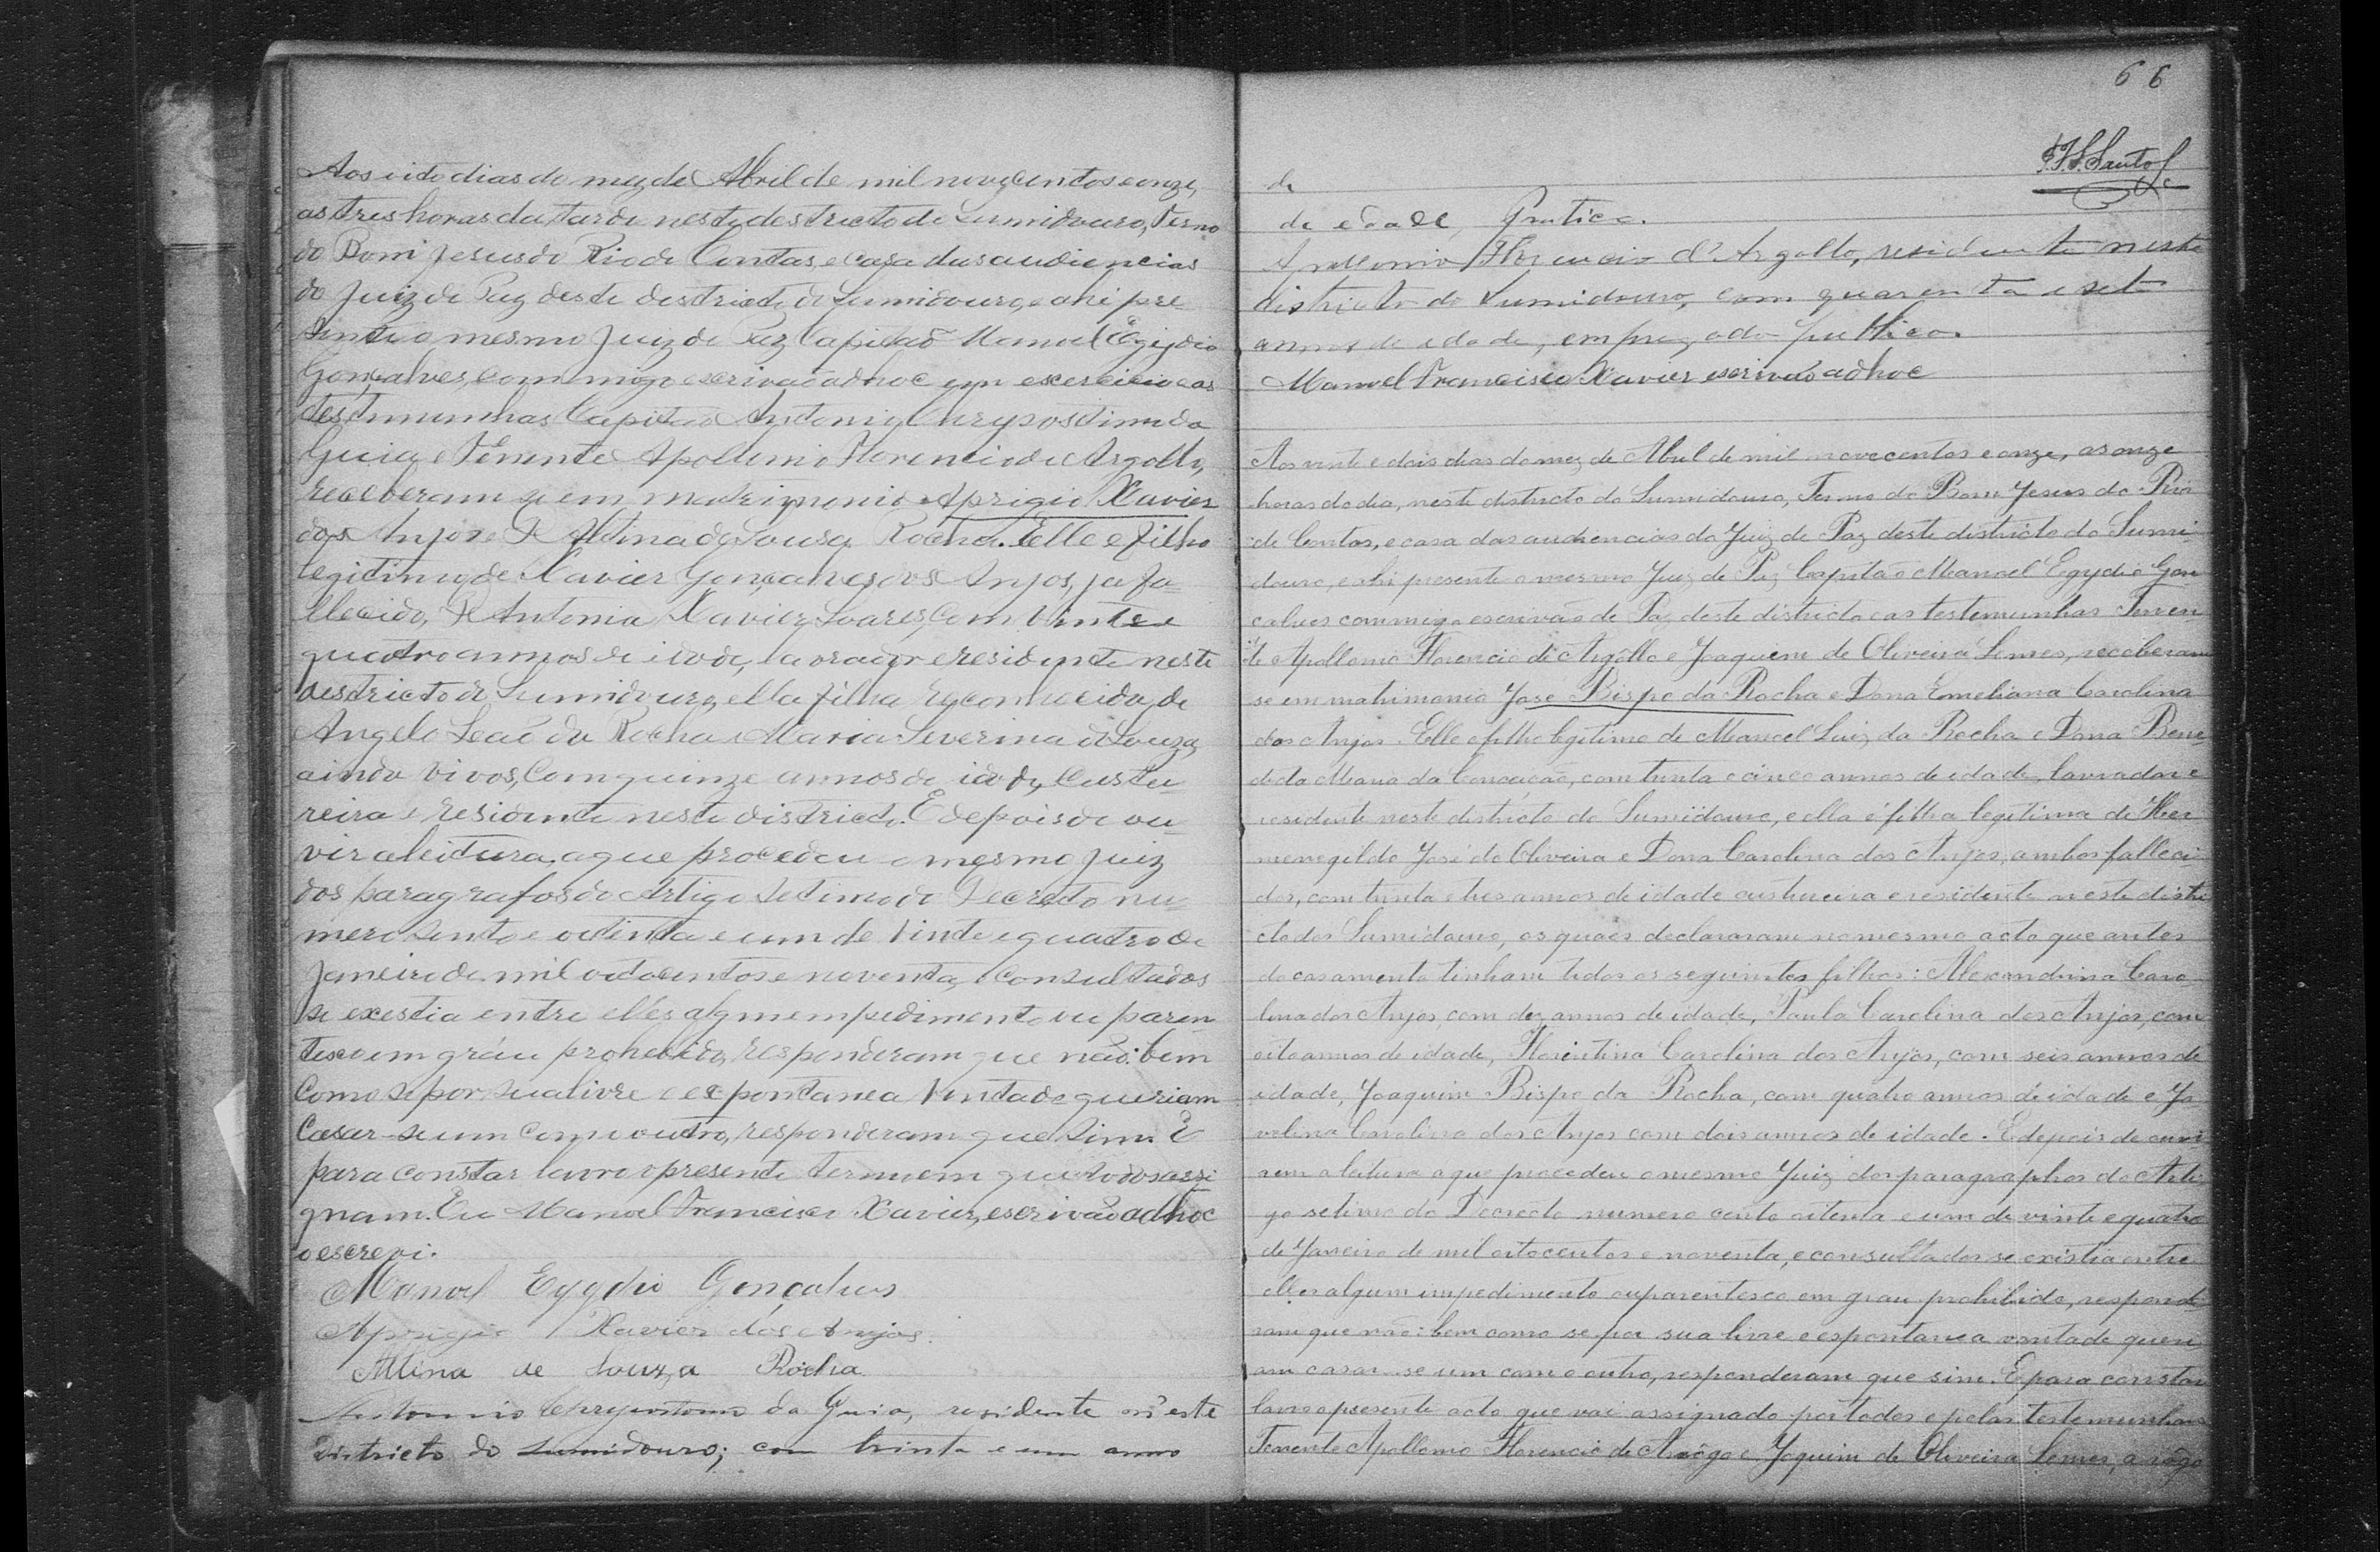 Aos oito dias do mez de Abril de mil novecentos e onze,
as tres horas da tarde neste destricto do Sumidouro, Termo
do Bom Jesus do Rio de Contas, e casa das audiencias
do Juiz de Paz deste destricto do Sumidouro, e ahi pre-
sente o mesmo Juiz de Paz Capitaõ Manoel Egydio
Gonçalves, commigo escrivaõ adhoc em exercicio e as
testmunhas Capitaõ Antonio Chrysostimo da
Guia e Tenente Apollonio Florencio de Argollo,
receberam se em matrimonio Aprigio Xavier
dos Anjos e D. Altina de Sousa Rocha. Elle e filho
legitimo de Xavier Gonçalves dos Anjos, ja fa-
llecido, D. Antonia Xavier Soares, com vinte e
quatro annos de idade, lavrador e residente neste
destricto do Sumidouro, ella filha reconhecida de
Angelo Leaõ da Rocha e Maria Severina de Souza,
ainda vivos, com quinze annos de idade, custu-
reira e residente neste districto. E depois de ou-
vir a leitura, a que procedeu o mesmo Juiz
dos paragrafos do Artigo setimo do Decreto nu-
mero sento e oitinta e um de vinte e quatro de
Janeiro de mil oitocentos e noventa, consultados
se exestia entre elles algm empedimento ou paren-
tesco em gráu prohebido, responderam que não: bem
como se por sua livre e expontanea vontade queriam
casar-se um com o outro, responderam que sim. E
para constar lavro o presente termo em que todos assi
gnam. Eu Manoel Francisco Xavier, escrivaõ adhoc
o escrevi.
Manoel Egydio Gonçalves
Aprigio Xavier dos Anjos.
Altina de Souza Rocha
Antonnio Chrysostomo da Guia, residente n'este
districto do Sumidouro; com trinta e um anno
66
J.F.S. Santos
de
de edade,
Apollonio Florencio d'Argollo, residente neste
districto do Sumidouro, com quarenta e sete
annos de idade, empregado publico.
Manoel Francisco Xavier escrivaõ adhoc
Aos vinte e dois dias do mez de Abril de mil novecentos e onze, as onze
horas do dia, neste districto do Sumidouro, Termo do Bom Jesus do Rio
de Contas, e casa das audiencias do Juiz de Paz deste districto do Sumi
douro, e ahi presente o mesmo Juiz de Paz Capitão Manoel Egydio Gon
calves commigo escrivão de Paz deste districto e as testemunhas Tenen
te Apollonio Florencio de Argollo e Joaquim de Oliveira Lemes, receberam
se em matrimonio José Bispo da Rocha e Dona Emeliana Carolina
dos Anjos. Elle é filho legitimo de Manoel Luiz da Rocha e Dona Bene-
dicta Maria da Conceição, com trinta e cinco annos de idade, lavrador e
residente neste districto do Sumidouro, e ella é filha legitima de Her
menegildo José de Oliveira e Dona Carolina dos Anjos, ambos falleci
dos, com trinta e tres annos de idade custureira e residente neste distri
cto dos Sumidouro, os quaes declararam no mesmo acto que antes
do casamento tinham tidos os seguintes filhos: Alexandrina Caro-
lina dos Anjos, com dez annos de idade, Paula Carolina dos Anjos, com
oito annos de idade, Florentina Carolina dos Anjos, com seis annos de
idade, Joaquim Bispo da Rocha, com quatro annos de idade e Jo
velina Carolina dos Anjos com dois annos de idade. E depois de ouvi
rem a leitura a que procedeu o mesmo Juiz dos paragraphos do Arti
go setimo do Decreto numero cento oitenta e um de vinte e quatro
de Janeiro de mil oitocentos e noventa, e consultados se existia entre
elles algum impedimento ou parentesco em grau prohibido, responde
ram que não: bem como se por sua livre e espontanea vontade queri
am casar-se um com o outro, responderam que sim. E para constar
lavro o presente acto que vai assignado por todos e pelas testemunhas
Tenente Apollonio Florencio de Argôgo e Joquim de Oliveira Lemes, a rôgo